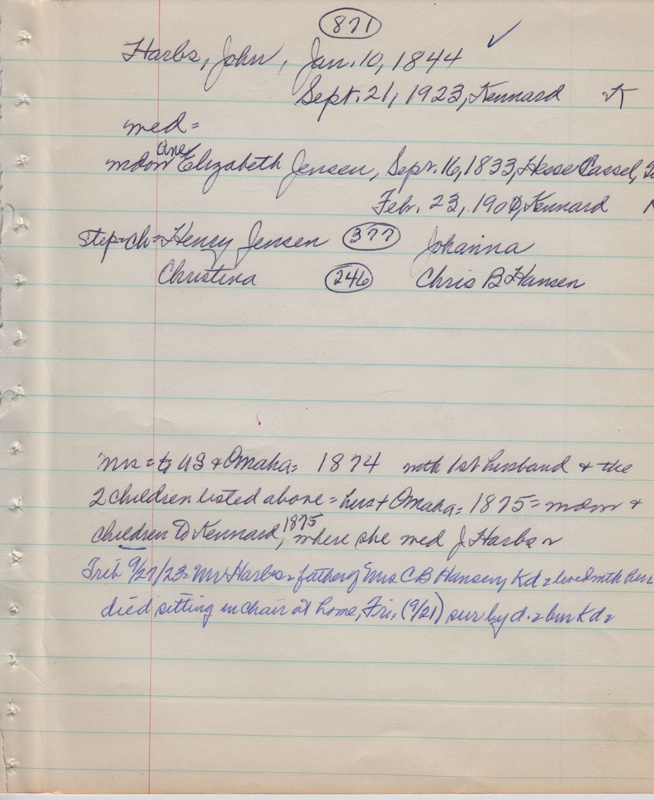 871
Harbs, John, Jan. 10, 1844 ✓
Sept. 21, 1923, Kennard K
med =
Ane
mdow Elizabeth Jensen, Sept. 16, 1833, Hesse Cassel,
Feb. 23, 190 , Kennard
step-ch = Henry Jensen 377 Johanna
Christina 246 Chris B Hansen
Mrs = to US & Omaha = 1874 with 1st husband & the
2 children listed above = hus + Omaha = 1875 = mdow &
children to Kennard, 1875, where she med J. Harbs
Trib 9/27/23 = Mr Harbs = father of Mrs C B Hansen, Kd = lived with her
died sitting in chair at home, Fri, (9/21) sur by d. = bur Kd